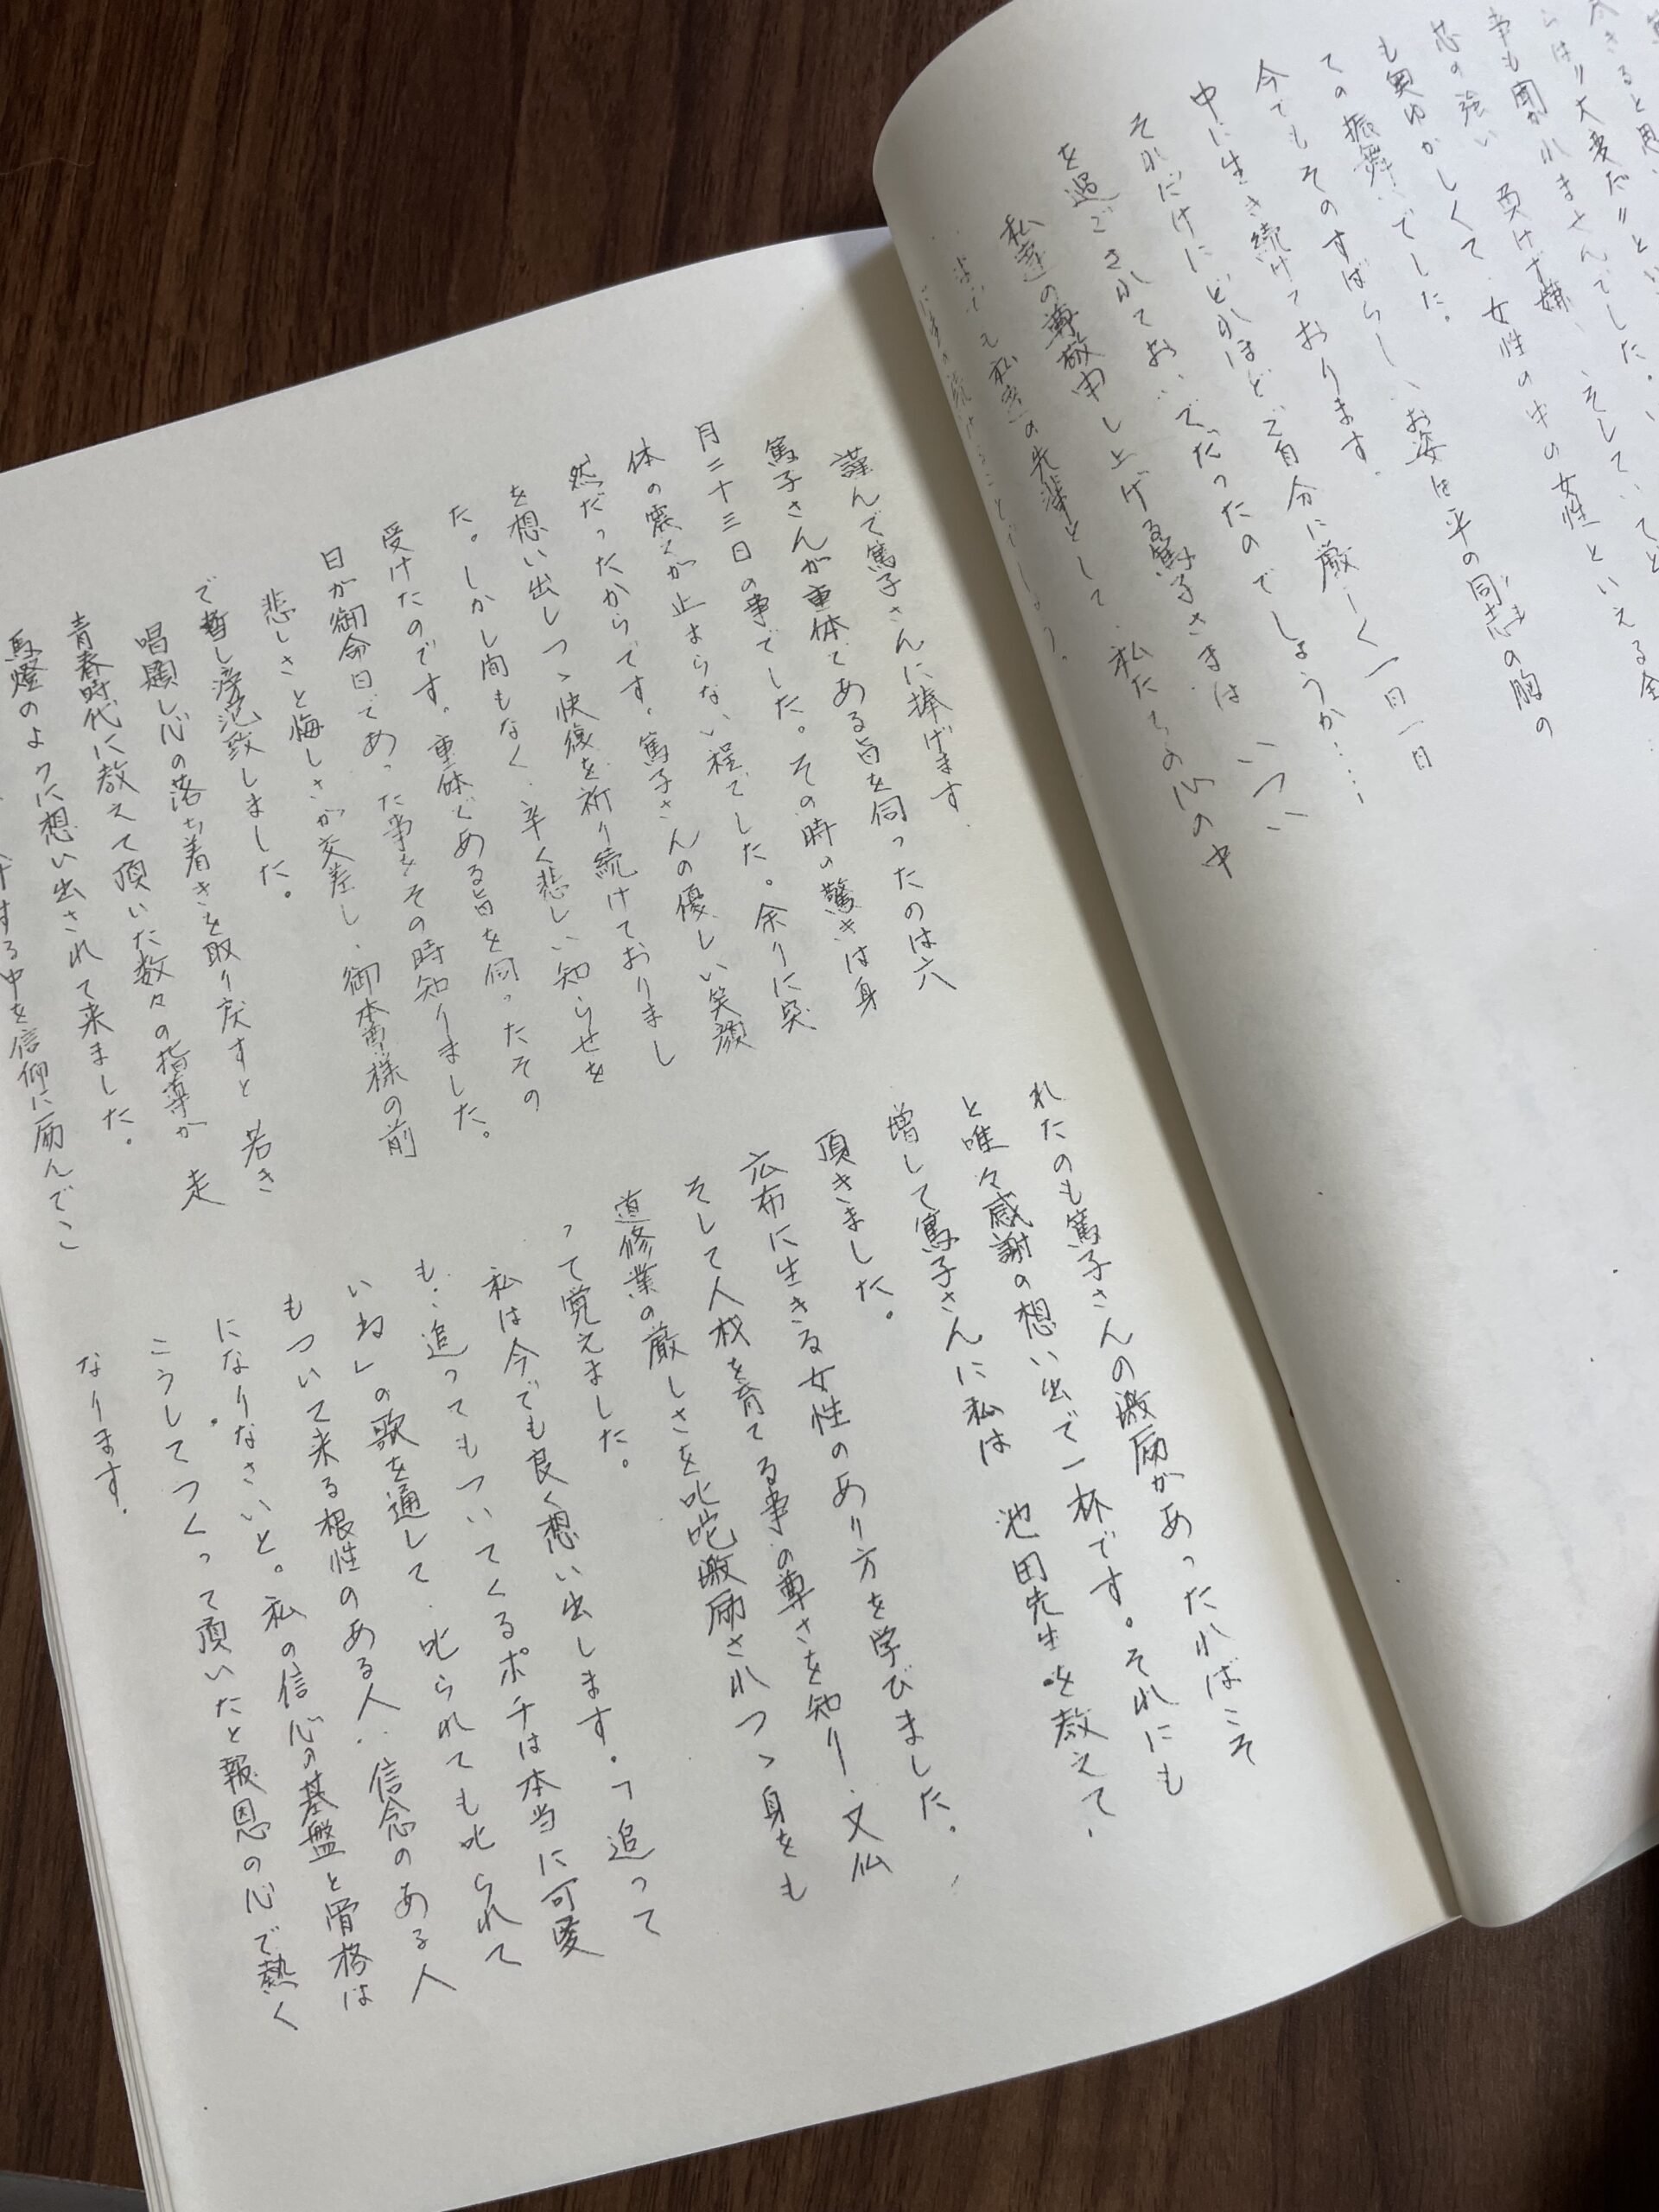 きると思
らは〃大変だ〃と
事も聞かれませんでした。
芯の強い 負けず嫌、そしていてと
も奥ゆかしくて、女性の中の女性といえる全
ての振舞いでした。
今でもそのすばらしいお姿は平の同志の胸の
中に生き続けております。
それだけにどれほどご自分に厳しく一日一日
を過ごされておいでだったのでしょうか…
私達の尊敬申し上げる篤子さまは いついつ
も私達の先輩として、私たちの心の中
謹んで篤子さんに捧げます。
篤子さんが重体である旨を伺ったのは六
月二十三日の事でした。その時の驚きは身
体の震えが止まらない程でした。余りに突
然だったからです。篤子さんの優しい笑顔
を想い出しつゝ快復を祈り続けておりまし
た。しかし間もなく、辛く悲しい知らせを
受けたのです。重体である旨を伺ったその
日が御命日であった事をその時知りました。
悲しさと悔しさが交差し、御本尊様の前
で暫し滂沱致しました。
唱題し心の落ち着きを取り戻すと 若き
青春時代に教えて頂いた数々の指導が 走
馬燈のように想い出されて来ました。
する中を信仰に励んでこ
れたのも篤子さんの激励があったればこそ
と唯々感謝の想い出で一杯です。それにも
増して篤子さんに私は 池田先生を教えて
頂きました。
広布に生きる女性のあり方を学びました。
そして人材を育てる事の尊さを知り、又仏
道修業の厳しさを叱咤激励されつゝ身をも
って覚えました。
私は今でも良く想い出します。「追って
も、追ってもついてくるポチは本当に可愛
いね」の歌を通して、叱られても叱られて
もついて来る根性のある人、信念のある人
になりなさいと。私の信心の基盤と骨格は
こうしてつくって頂いたと報恩の心で熱く
なります。